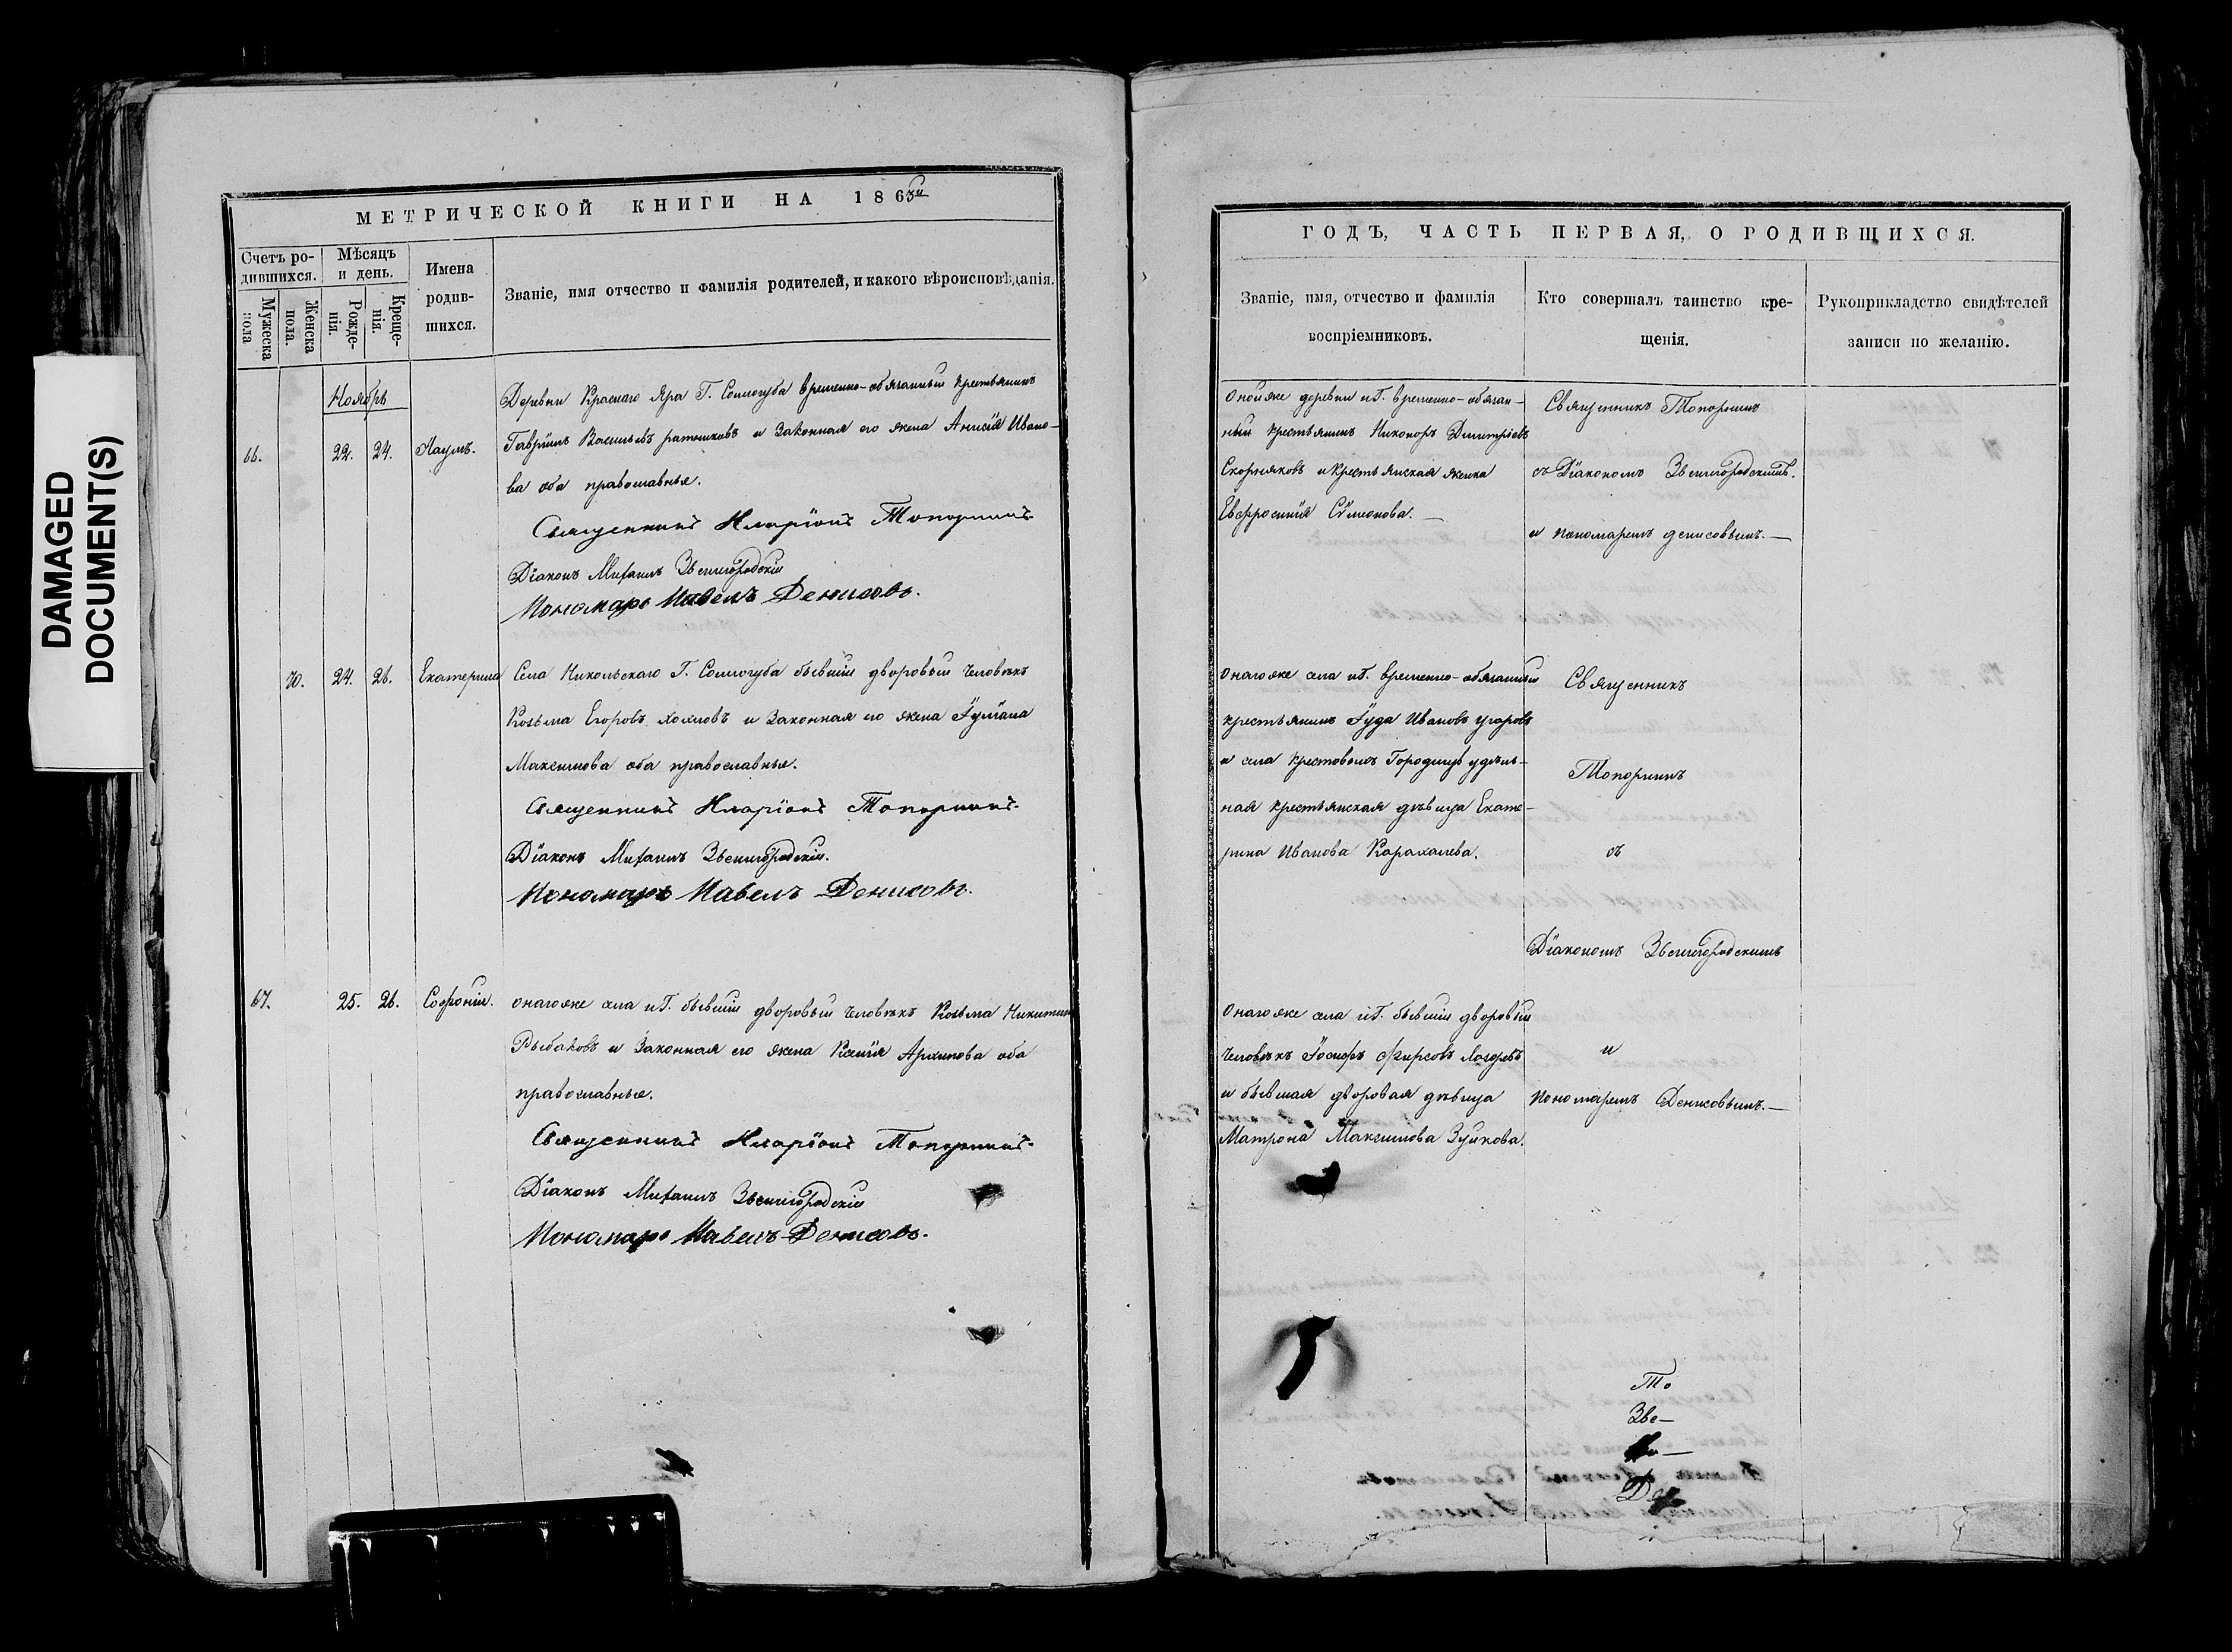 DAMAGED
DOCUMENT(S)
МЕТРИЧЕСКОЙ КНИГИ НА 186
Счетъ ро-
дившихся.
Мужеска
пола
Женска
пола.
Мѣсяцъ
и день.
Рожде-
нія.
Креще-
нія.
Имена
родив-
шихся.
Званіе, имя отчество и фамилія родителей, и какого вѣроисповѣданія.
Ноябрь
66.
22.
24.
Наумъ.
Деревни Краснаго Яра Г. Соллогуба временно-обязанный крестьянинъ
Гавріилъ Васильевъ и законная его жена Анисія Ивано-
ва оба православные.
Священникъ Иларіонъ Топорнинъ.
Діаконъ Михаилъ Звенигородскій
Пономарь Павелъ Денисовъ.
70.
24.
26.
Екатерина
Села Никольскаго Г. Соллогуба бывшій дворовый человѣкъ
Козьма Егоровъ Хохловъ и законная его жена Іуліана
Максимова оба православные.
Священникъ Иларіонъ Топорнинъ.
Діаконъ Михаилъ Звенигородскій.
Пономарь Павелъ Денисовъ.
67.
25.
26.
Софроній.
Онагоже села и Г. бывшій дворовый человѣкъ Козьма Никитинъ
Рыбаковъ и законная его жена Ксенія Архипова оба
православные.
Священникъ Иларіонъ Топорнинъ.
Діаконъ Михаилъ Звенигородскій
Пономарь Павелъ Денисовъ.
ГОДЪ, ЧАСТЬ ПЕРВАЯ, О РОДИВШИХСЯ.
Званіе, имя, отчество и фамилія
воспріемниковъ.
Кто совершалъ таинство кре-
щенія.
Рукоприкладство свидѣтелей
записи по желанію.
Онойже деревни и Г. временно-обязан-
ный крестьянинъ Никоноръ Димитріевъ
Скорняковъ и крестьянская женка
Евфросинія Сѵмеонова.—
Священникъ Топорнинъ
съ Діакономъ Звенигородскимъ.
и пономаремъ Денисовымъ.—
Онагоже села и Г. временно-обязанный
крестьянинъ Іуда Ивановъ Угаровъ
и села Крестовыхъ Городищъ удѣль-
ная крестьянская дѣвица Екате-
рина Иванова Карахалева.
Священникъ
Топорнинъ
съ
Діакономъ Звенигородскимъ
Онагоже села и Г. бывшій дворовый
человѣкъ Іосифъ Фирсовъ
и бывшая дворовая дѣвица
Матрона Максимова Зуйкова.
и
Пономаремъ Денисовымъ.—
То
Зве—
Де